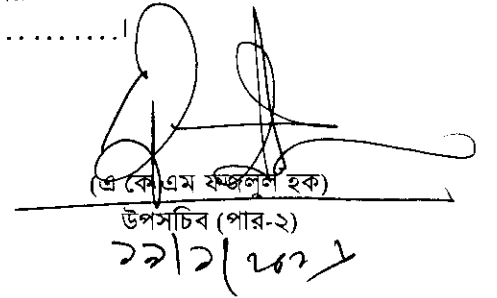 ..........।
(এ কে এম ফজলুল হক)
উপসচিব (পার-২)
১৯/১/২০২১